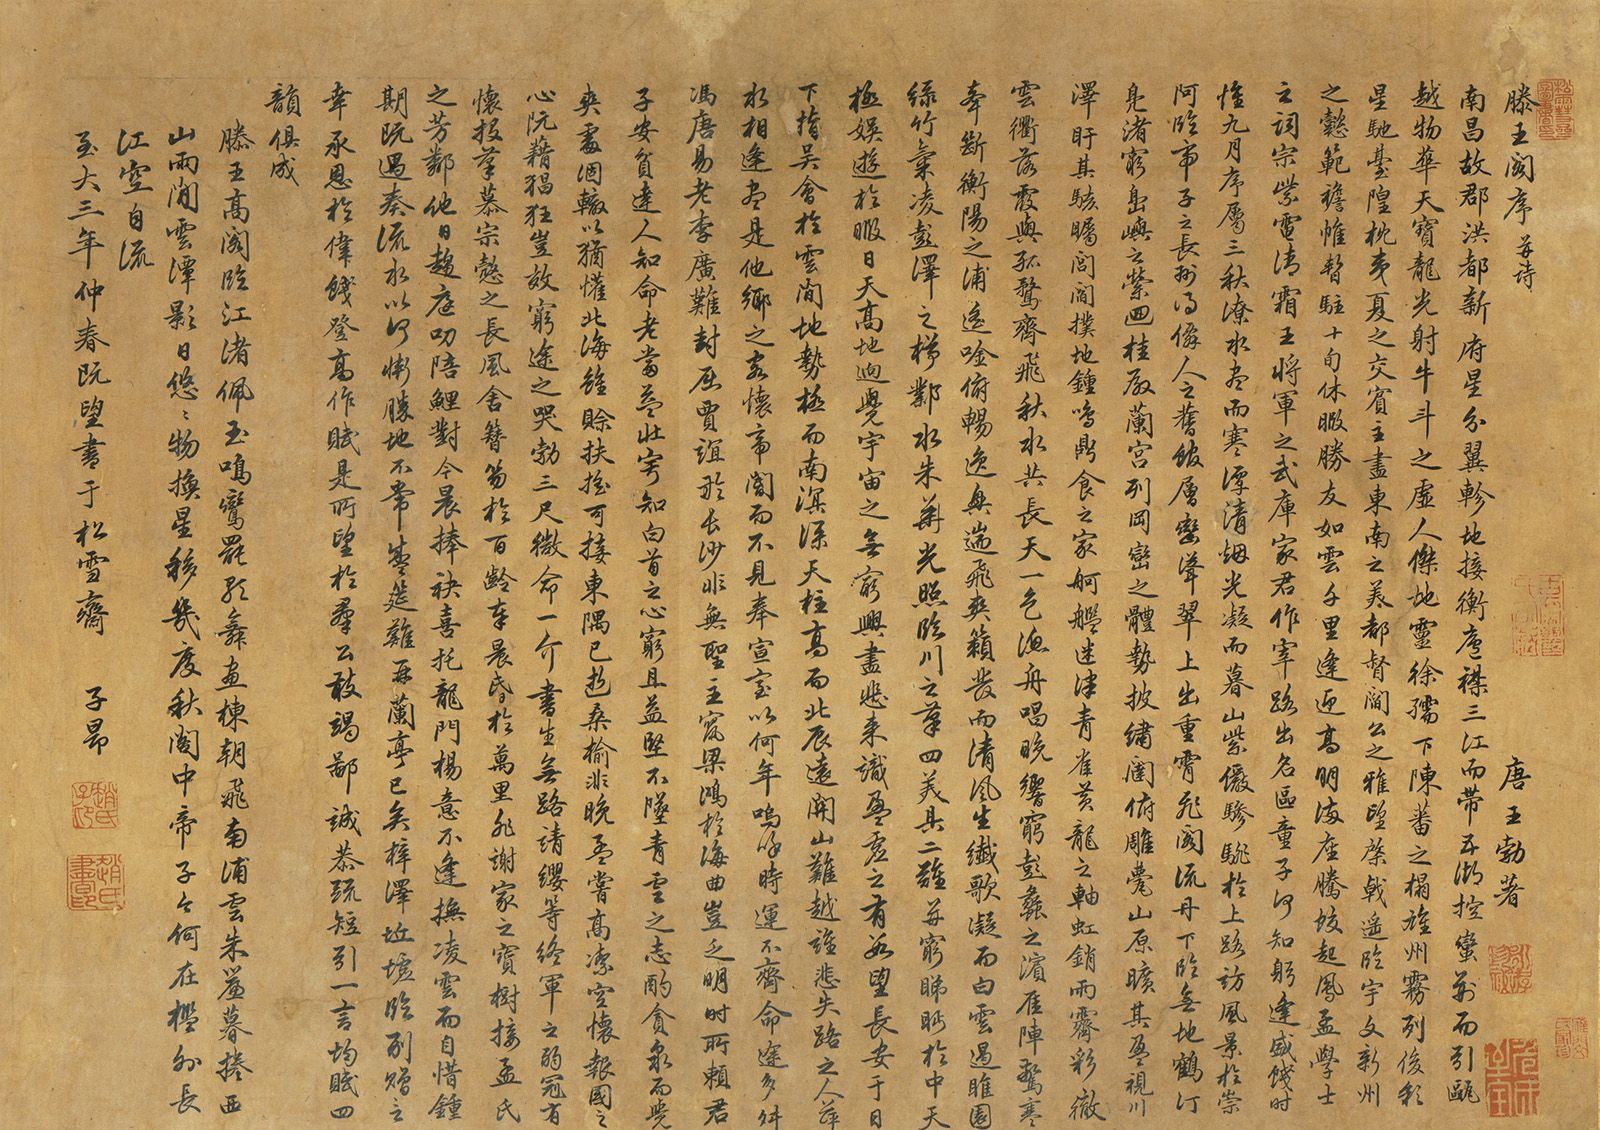 滕王閣序并詩 唐王勃著
南昌故郡洪都新府星分翼軫地接衡廬襟三江而帶五湖控蠻荊而引甌
越物華天寶龍光射牛斗之虛人傑地靈徐孺下陳蕃之榻雄州霧列俊彩
星馳臺隍枕夷夏之交賓主盡東南之美都督閻公之雅望棨戟遙臨宇文新州
之懿範襜帷暫駐十旬休暇勝友如雲千里逢迎高明滿座騰蛟起鳳孟學士
之詞宗紫電清霜王將軍之武庫家君作宰路出名區童子何知躬逢盛餞時
惟九月序屬三秋潦水盡而寒潭清烟光凝而暮山紫儼驂騑於上路訪風景於崇
阿臨帝子之長洲得僊人之舊館層巒聳翠上出重霄飛閣流丹下臨無地鶴汀
鳧渚窮島嶼之縈迴桂殿蘭宮列岡巒之體勢披繡闥俯雕甍山原曠其盈視川
澤盱其駭矚閭閻撲地鍾鳴鼎食之家舸艦迷津青雀黃龍之軸虹銷雨霽彩徹
雲衢落霞與孤鶩齊飛秋水共長天一色漁舟唱晚響窮彭蠡之濱雁陣驚寒
聲斷衡陽之浦遙吟俯暢逸興遄飛爽籟發而清風生纖歌凝而白雲遏睢園
綠竹氣凌彭澤之樽鄴水朱華光照臨川之筆四美具二難并窮睇眄於中天
極娛遊於暇日天高地迥覺宇宙之無窮興盡悲來識盈虛之有數望長安于日
下指吳會於雲間地勢極而南溟深天柱高而北辰遠關山難越誰悲失路之人萍
水相逢盡是他鄉之客懷帝閽而不見奉宣室以何年嗚呼時運不齊命途多舛
馮唐易老李廣難封屈賈誼於長沙非無聖主竄梁鴻於海曲豈乏明時所賴君
子安貧達人知命老當益壯寧知白首之心窮且益堅不墜青雲之志酌貪泉而覺
爽處涸轍以猶懽北海雖賒扶搖可接東隅已逝桑榆非晚孟嘗高潔空懷報國之
心阮籍猖狂豈效窮途之哭勃三尺微命一介書生無路請纓等終軍之弱冠有
懷投筆慕宗愨之長風舍簪笏於百齡奉晨昏於萬里非謝家之寶樹接孟氏
之芳鄰他日趨庭叨陪鯉對今晨捧袂喜托龍門楊意不逢撫凌雲而自惜鍾
期既遇奏流水以何慚勝地不常盛筵難再蘭亭已矣梓澤坵墟臨別贈之
幸承恩於偉餞登高作賦是所望於羣公敢竭鄙誠恭疏短引一言均賦四
韻俱成
滕王高閣臨江渚佩玉鳴鸞罷歌舞畫棟朝飛南浦雲朱簾暮捲西
山雨閒雲潭影日悠悠物換星移幾度秋閣中帝子今何在檻外長
江空自流
至大三年仲春既望書于松雪齋 子昂
趙氏子昂
趙氏書印